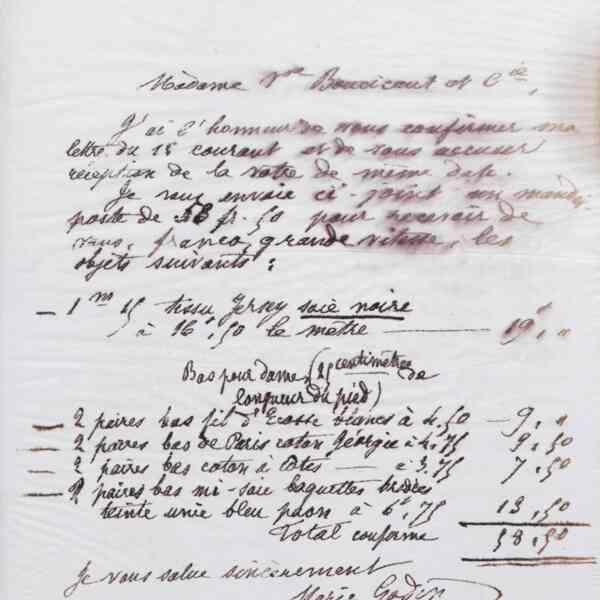 Madame Vve Boucicaut et Cie,
J'ai l'honneur de vous confirmer ma
lettre du 18 courant et de vous accuser
réception de la votre de même date.
Je vous envoie ci-joint un mandat
poste de 58 fr. 50 pour recevoir de
vous, franco, grande vitesse, les
objets suivants :
— 1m 15 tissu Jersey soie noire
à 16f,50 le mètre — 19f, "
Bas pour dame, (25 centimètres de
longueur du pied)
— 2 paires bas fil d'Ecosse blancs à 4,50 — 9, "
— 2 paires bas de Paris coton Géorgie à 4,75 9,50
— 2 paires bas coton à côtes — à 3,75 7,50
— 2 paires bas mi-soie baguettes brodées
teinte unie bleu paon à 6f,75 13,50
Total conforme 58,50
Je vous salue sincèrement
Marie Godin